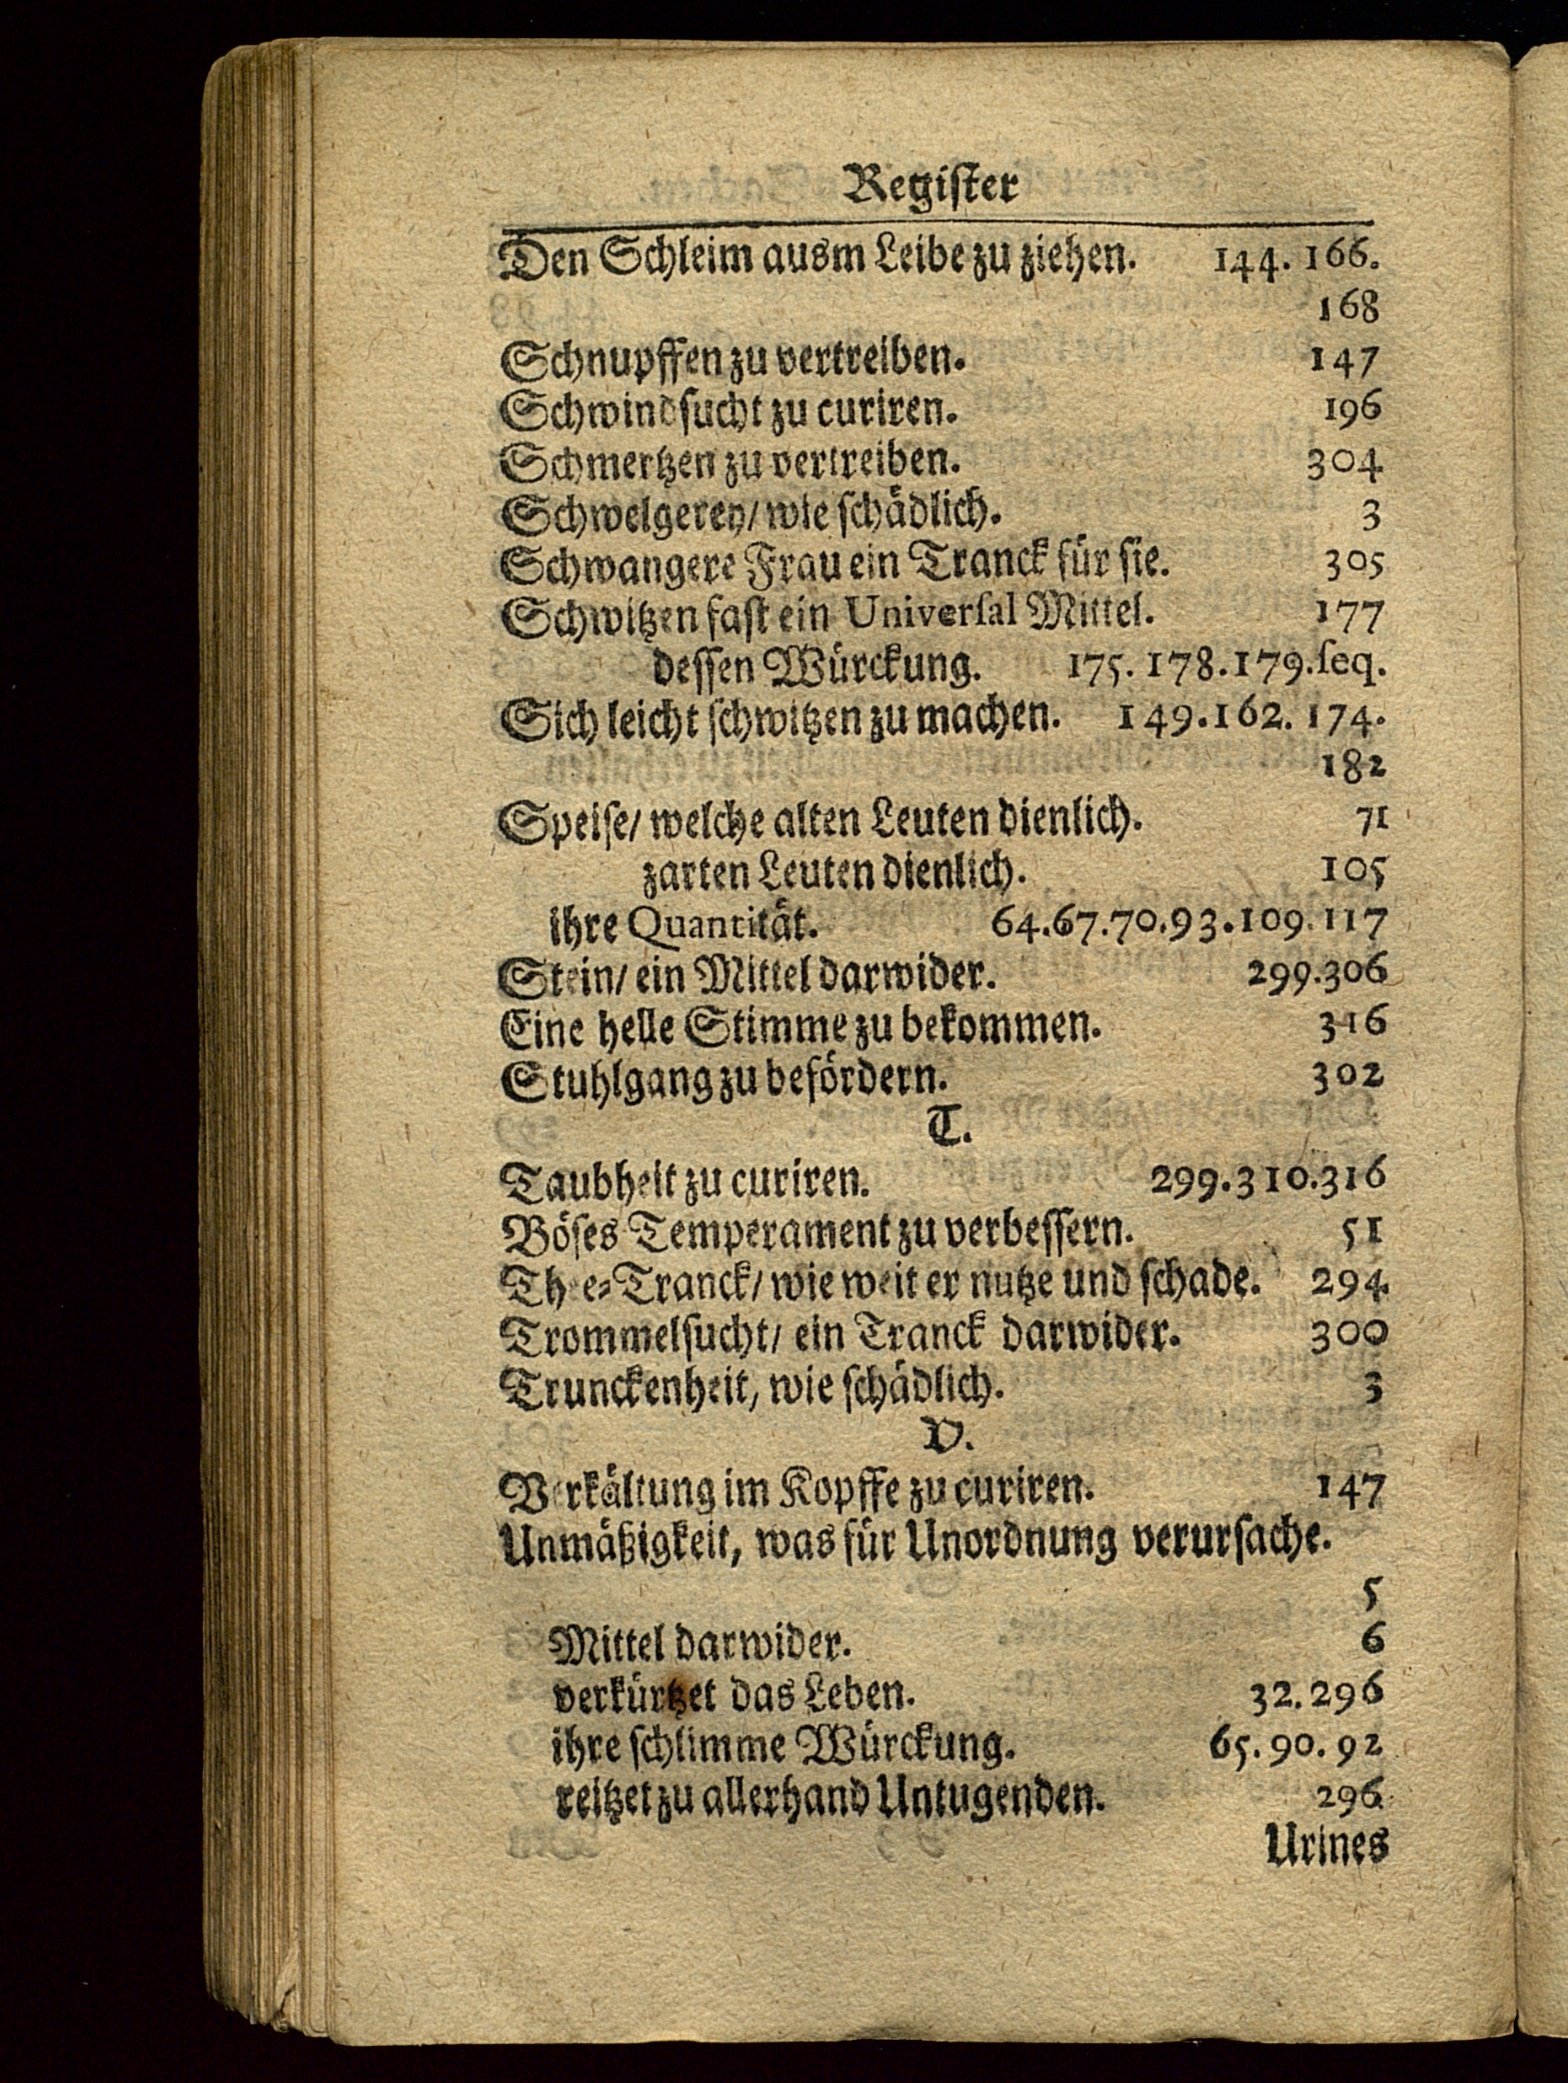 Register
Den Schleim ausm Leibe zu ziehen. 144. 166.
168
Schnupffen zu vertreiben. 147
Schwindsucht zu curiren. 196
Schmertzen zu vertreiben. 304
Schwelgerey/ wie schädlich. 3
Schwangere Frau ein Tranck für sie. 305
Schwitzen fast ein Universal Mittel. 177
dessen Würckung. 175. 178. 179. seq.
Sich leicht schwitzen zu machen. 149. 162. 174.
182
Speise/ welche alten Leuten dienlich. 71
zarten Leuten dienlich. 105
ihre Quantität. 64. 67. 70. 93. 109. 117
Stein/ ein Mittel darwider. 299. 306
Eine helle Stimme zu bekommen. 316
Stuhlgang zu befördern. 302
T.
Taubheit zu curiren. 299. 310. 316
Böses Temperament zu verbessern. 51
Thee-Tranck/ wie weit er nutze und schade. 294
Trommelsucht/ ein Tranck darwider. 300
Trunckenheit, wie schädlich. 3
V.
Verkältung im Kopffe zu curiren. 147
Unmäßigkeit, was für Unordnung verursache.
5
Mittel darwider. 6
verkürtzet das Leben. 32. 296
ihre schlimme Würckung. 65. 90. 92
reitzet zu allerhand Untugenden. 296
Urines